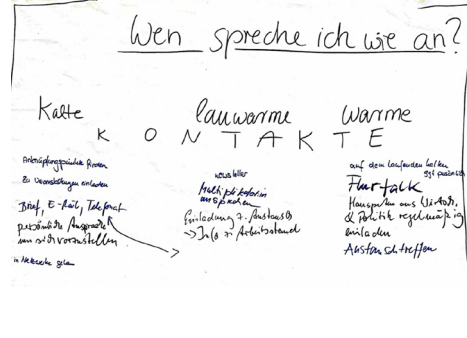 Wen spreche ich wie an?
Kalte lauwarme warme
KONTAKTE
Anknüpfungspunkte finden
Zu Veranstaltungen einladen
Brief, E-Mail, Telefonat
persönliche Ansprache
um sich vorzustellen
in Netzwerke gehen
newsletter
Multiplikatorin
ansprechen
Einladung z. Austausch
-> Info z. Arbeitsstand
auf dem laufenden halten
ggf persönlich
Flurfalk
& Politik regelmäßig
einladen
Austauschtreffen